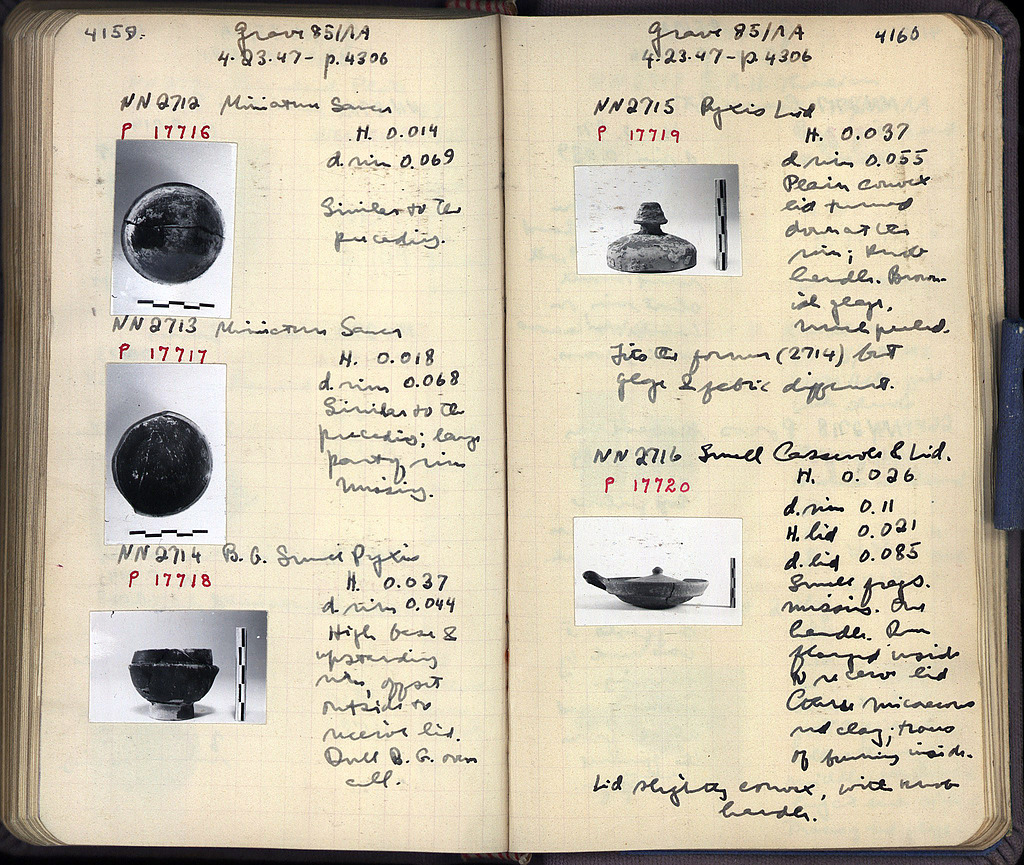 4159.
Grave 85/ΛΛ
4.23.47 - p. 4306
NN 2712 Miniature Saucer
P 17716
H. 0.014
d. rim 0.069
Similar to the
preceding.
NN 2713 Miniature Saucer
P 17717
H. 0.018
d. rim 0.068
Similar to the
preceding; large
part of rim
missing.
NN 2714 B.G. Small Pyxis
P 17718
H. 0.037
d. rim 0.044
High base &
upstanding
rim, offset
outside to
receive lid.
Dull B.G. over
all.
Grave 85/ΛΛ
4160
4.23.47 - p. 4306
NN 2715 Pyxis Lid
P 17719
H. 0.037
d. rim 0.055
Plain convex
lid turned
down at the
rim; knob
handle. Brown-
ish glaze,
much peeled.
Fits the former (2714) but
glaze & fabric different.
NN 2716 Small Casserole & Lid.
P 17720
H. 0.026
d. rim 0.11
H. lid 0.021
d. lid 0.085
Small frags.
missing. One
handle. Rim
flanged inside
to receive lid
Coarse micaceous
red clay; traces
of burning inside.
Lid slightly convex, with knob
handle.